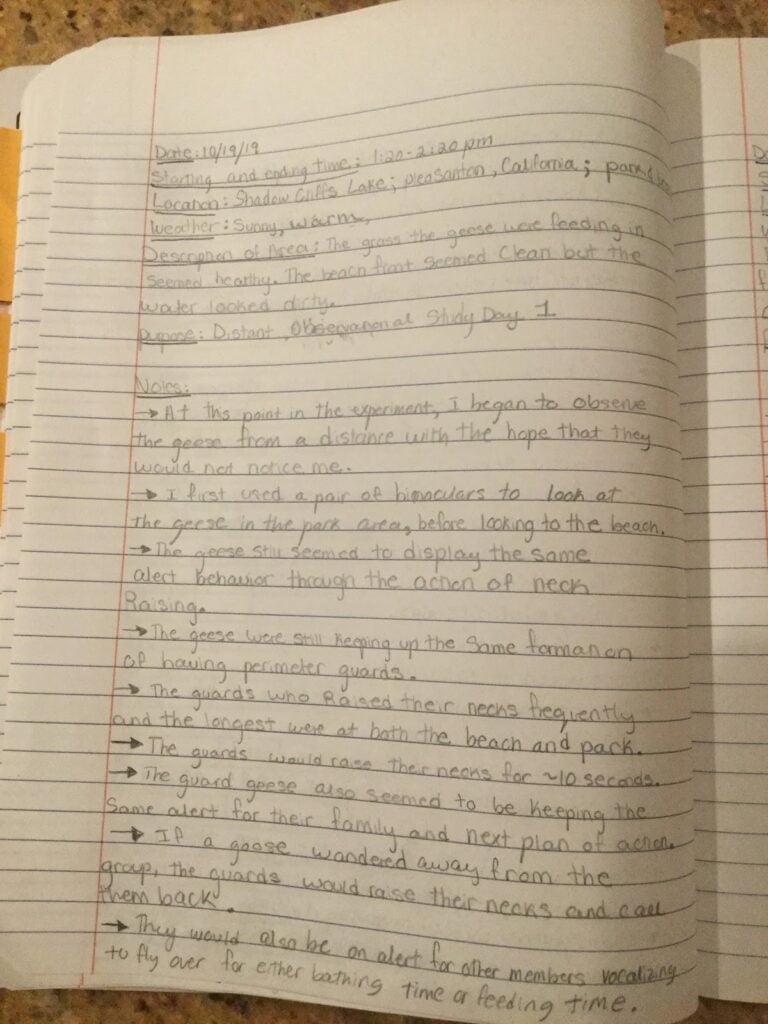 Date: 10/19/19
Starting and ending time: 1:20-2:20 pm
Location: Shadow Cliffs Lake; pleasanton, California; park &
Weather: Sunny, warm,
Description of Area: The grass the geese were feeding in
seemed healthy. The beach front seemed clean but the
water looked dirty.
Purpose: Distant, Observational Study Day 1
Notes:
→ At this point in the experiment, I began to observe
the geese from a distance with the hope that they
would not notice me.
→ I first used a pair of binoculars to look at
the geese in the park area, before looking to the beach.
→ The geese still seemed to display the same
alert behavior through the action of neck
Raising.
→ The geese were still keeping up the same formation
of having perimeter guards.
→ The guards who Raised their necks frequently
and the longest were at both the beach and park.
→ The guards would raise their necks for ~10 seconds.
→ The guard geese also seemed to be keeping the
same alert for their family and next plan of action.
→ If a goose wandered away from the
group, the guards would raise their necks and call
them back.
→ They would also be on alert for other members vocalizing
to fly over for either bathing time or feeding time.